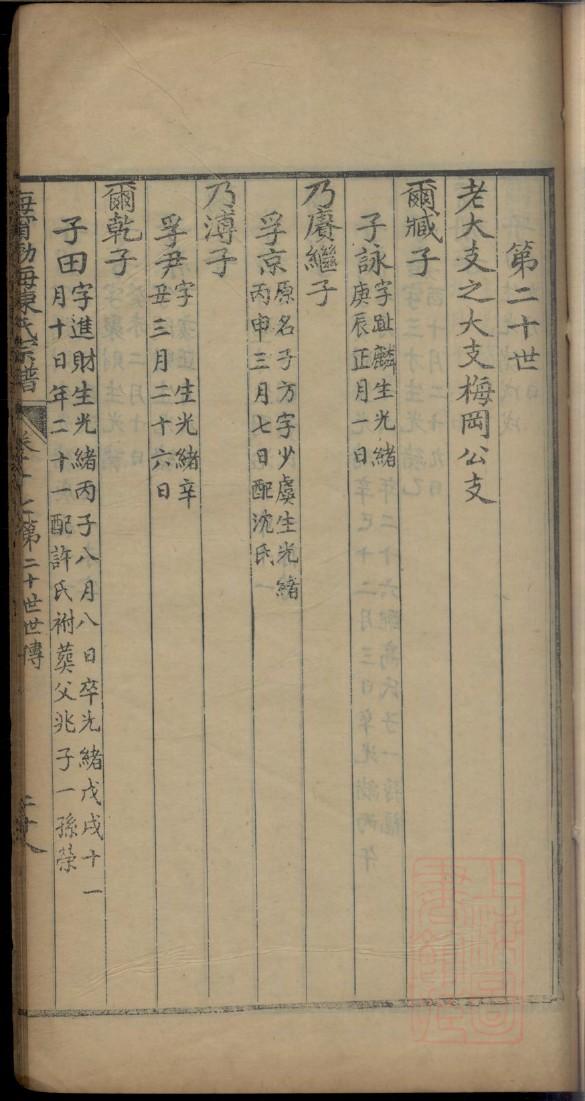 第二十世
老大支之大支梅岡公支
爾臧子
子詠字趾麟生光緒
庚辰正月一日
乃賡繼子
孚京原名子方字少虞生光緒
丙申三月七日配沈氏
乃溥子
孚尹字 生光緒辛
丑三月二十六日
爾乾子
子田字進財生光緒丙子八月八日卒光緒戊戌十一
月十日年二十一配許氏祔葬父兆子一孫榮
海寧渤海陳氏宗譜 第二十世世傳